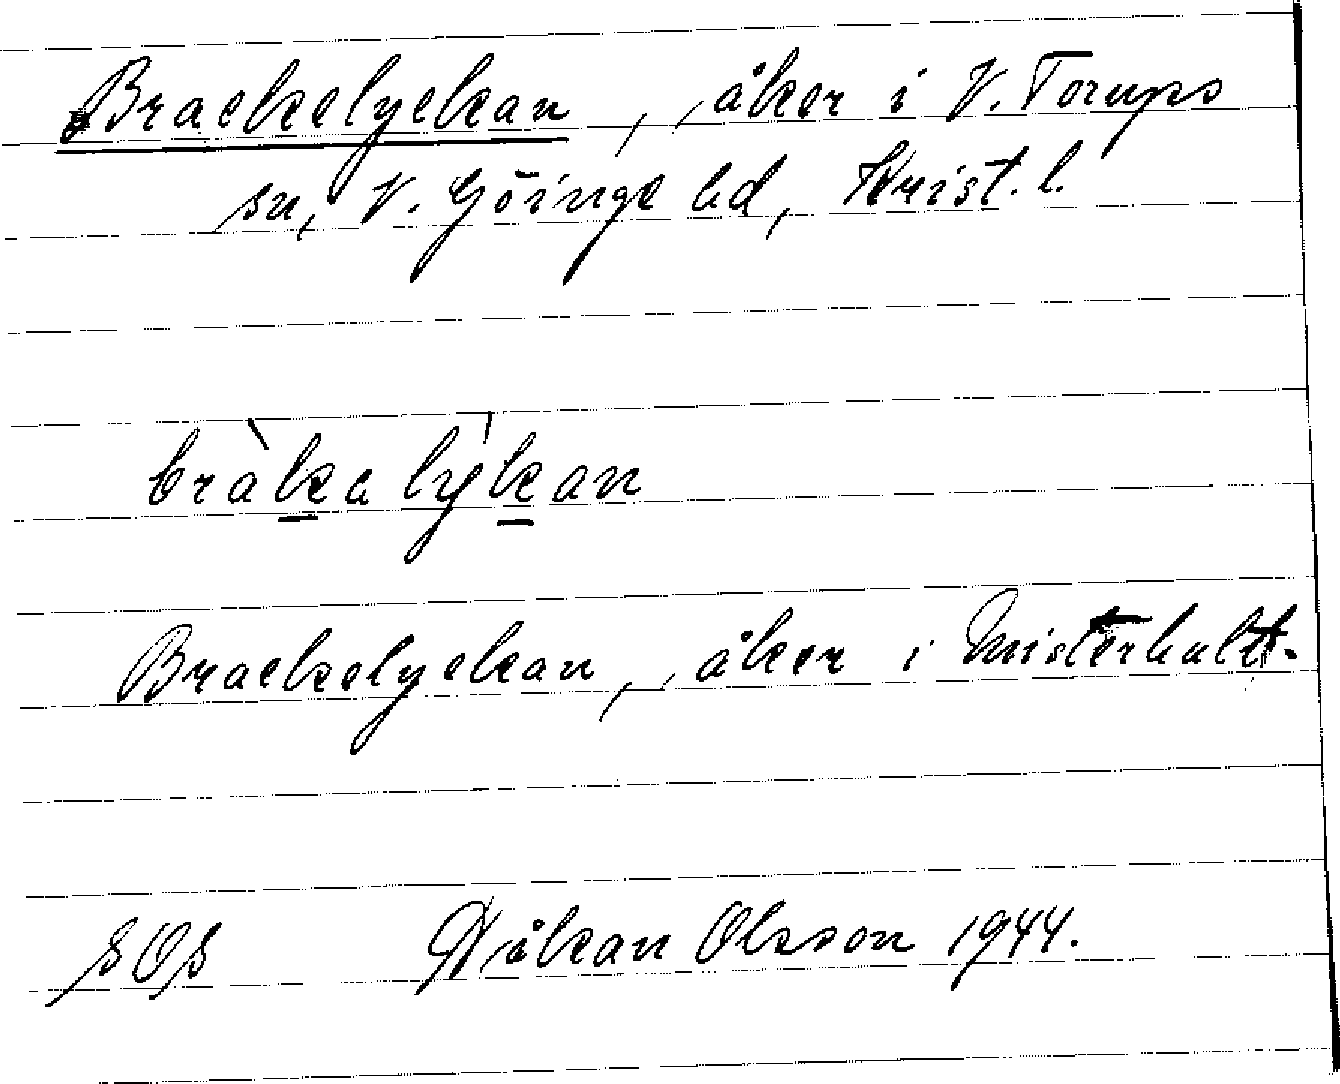 Brackelyckan, åker i V. Torups
sn, V. Göinge hd, Krist. l.
bràka lýkan
Brackelyckan, åker i Misterhult.
SOS Håkan Olsson 1944.